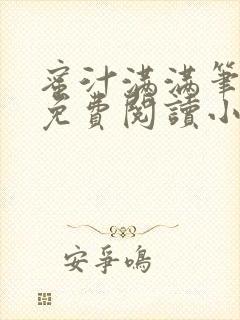 蜜汁滿滿筆
免費閱讀小
安爭鳴